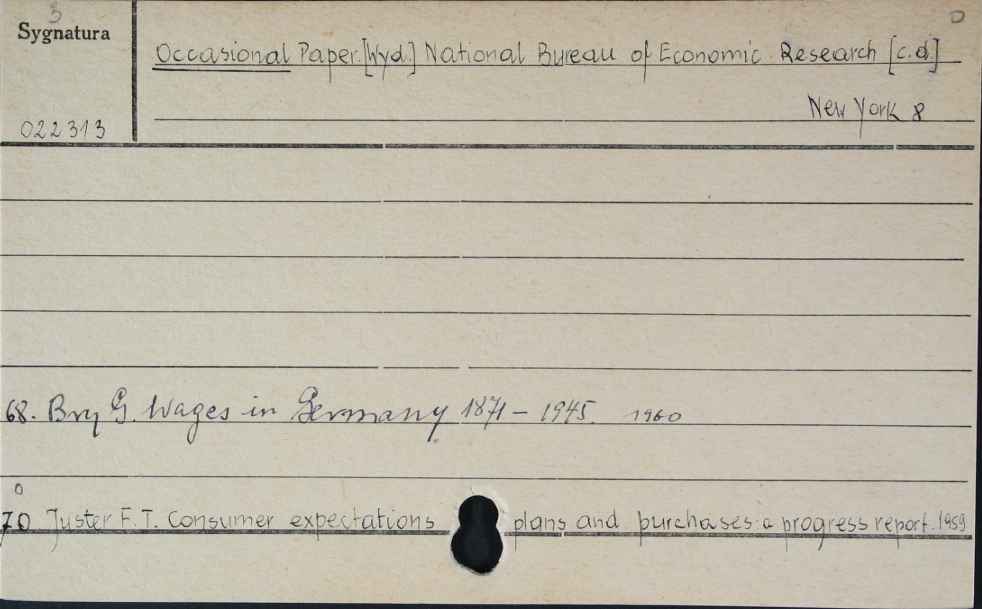 3
Sygnatura
Occasional Paper. [Wyd.] National Bureau of Economic Research [c.d.]
New York 8
022313
68. Bry G. Wages in Germany 1871 - 1945. 1960
0
70 Juster F. T. Consumer expectations plans and purchases: a progress report. 1959